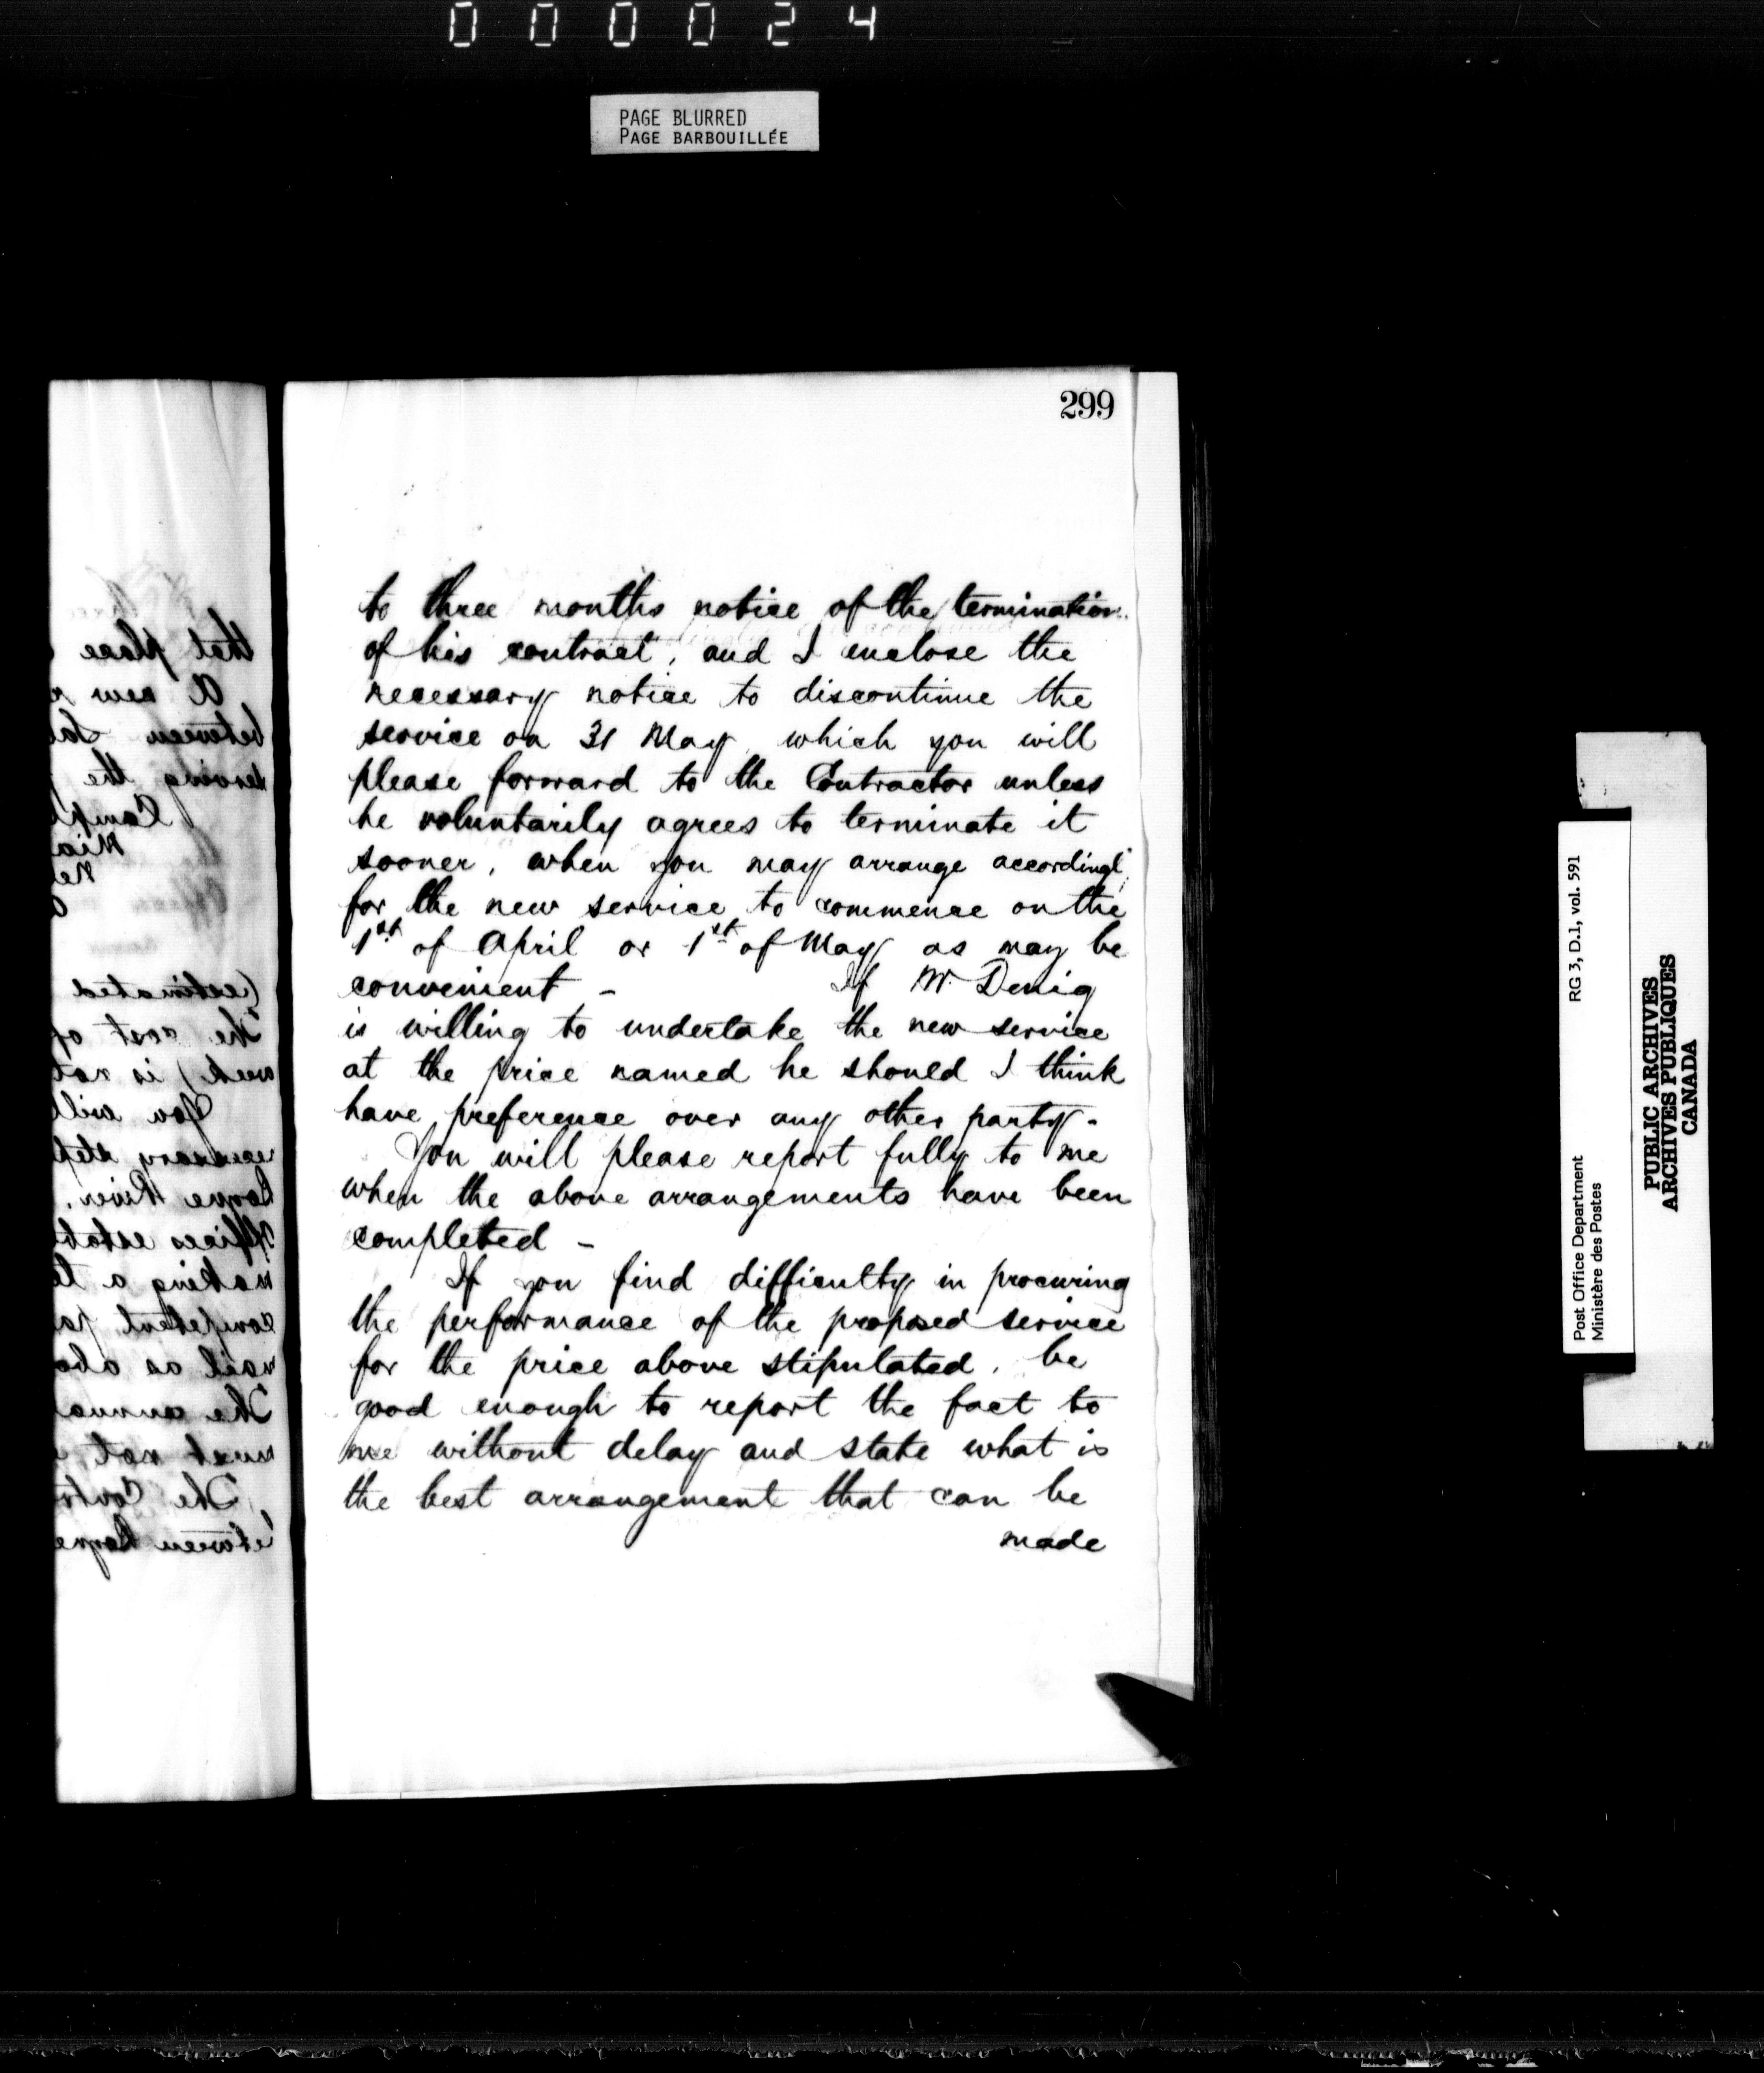 000024
PAGE BLURRED
PAGE BARBOUILLÉE
299
to three months notice of the termination
of his contract, and I enclose the
necessary notice to discontinue the
service on 31 May, which you will
please forward to the Contractor unless
he voluntarily agrees to terminate it
sooner, when you may arrange accordingl
for the new service to commence on the
1st of April or 1st of May as may be
convenient - If Mr Denig
is willing to undertake the new service
at the price named he should I think
have preference over any other party.
You will please report fully to me
when the above arrangements have been
completed -
If you find difficulty in procuring
the performance of the proposed service
for the price above stipulated, be
good enough to report the fact to
me without delay and state what is
the best arrangement that can be
made
that place
A new
between
serving the
(estimated
The cost of
week) is not
You will
necessary step
River,
offices estab
making a te
competent pa
mail as abo
The annual
must not
The Contr
between
RG 3, D.1, vol. 591
Post Office Department
Ministère des Postes
PUBLIC ARCHIVES
ARCHIVES PUBLIQUES
CANADA